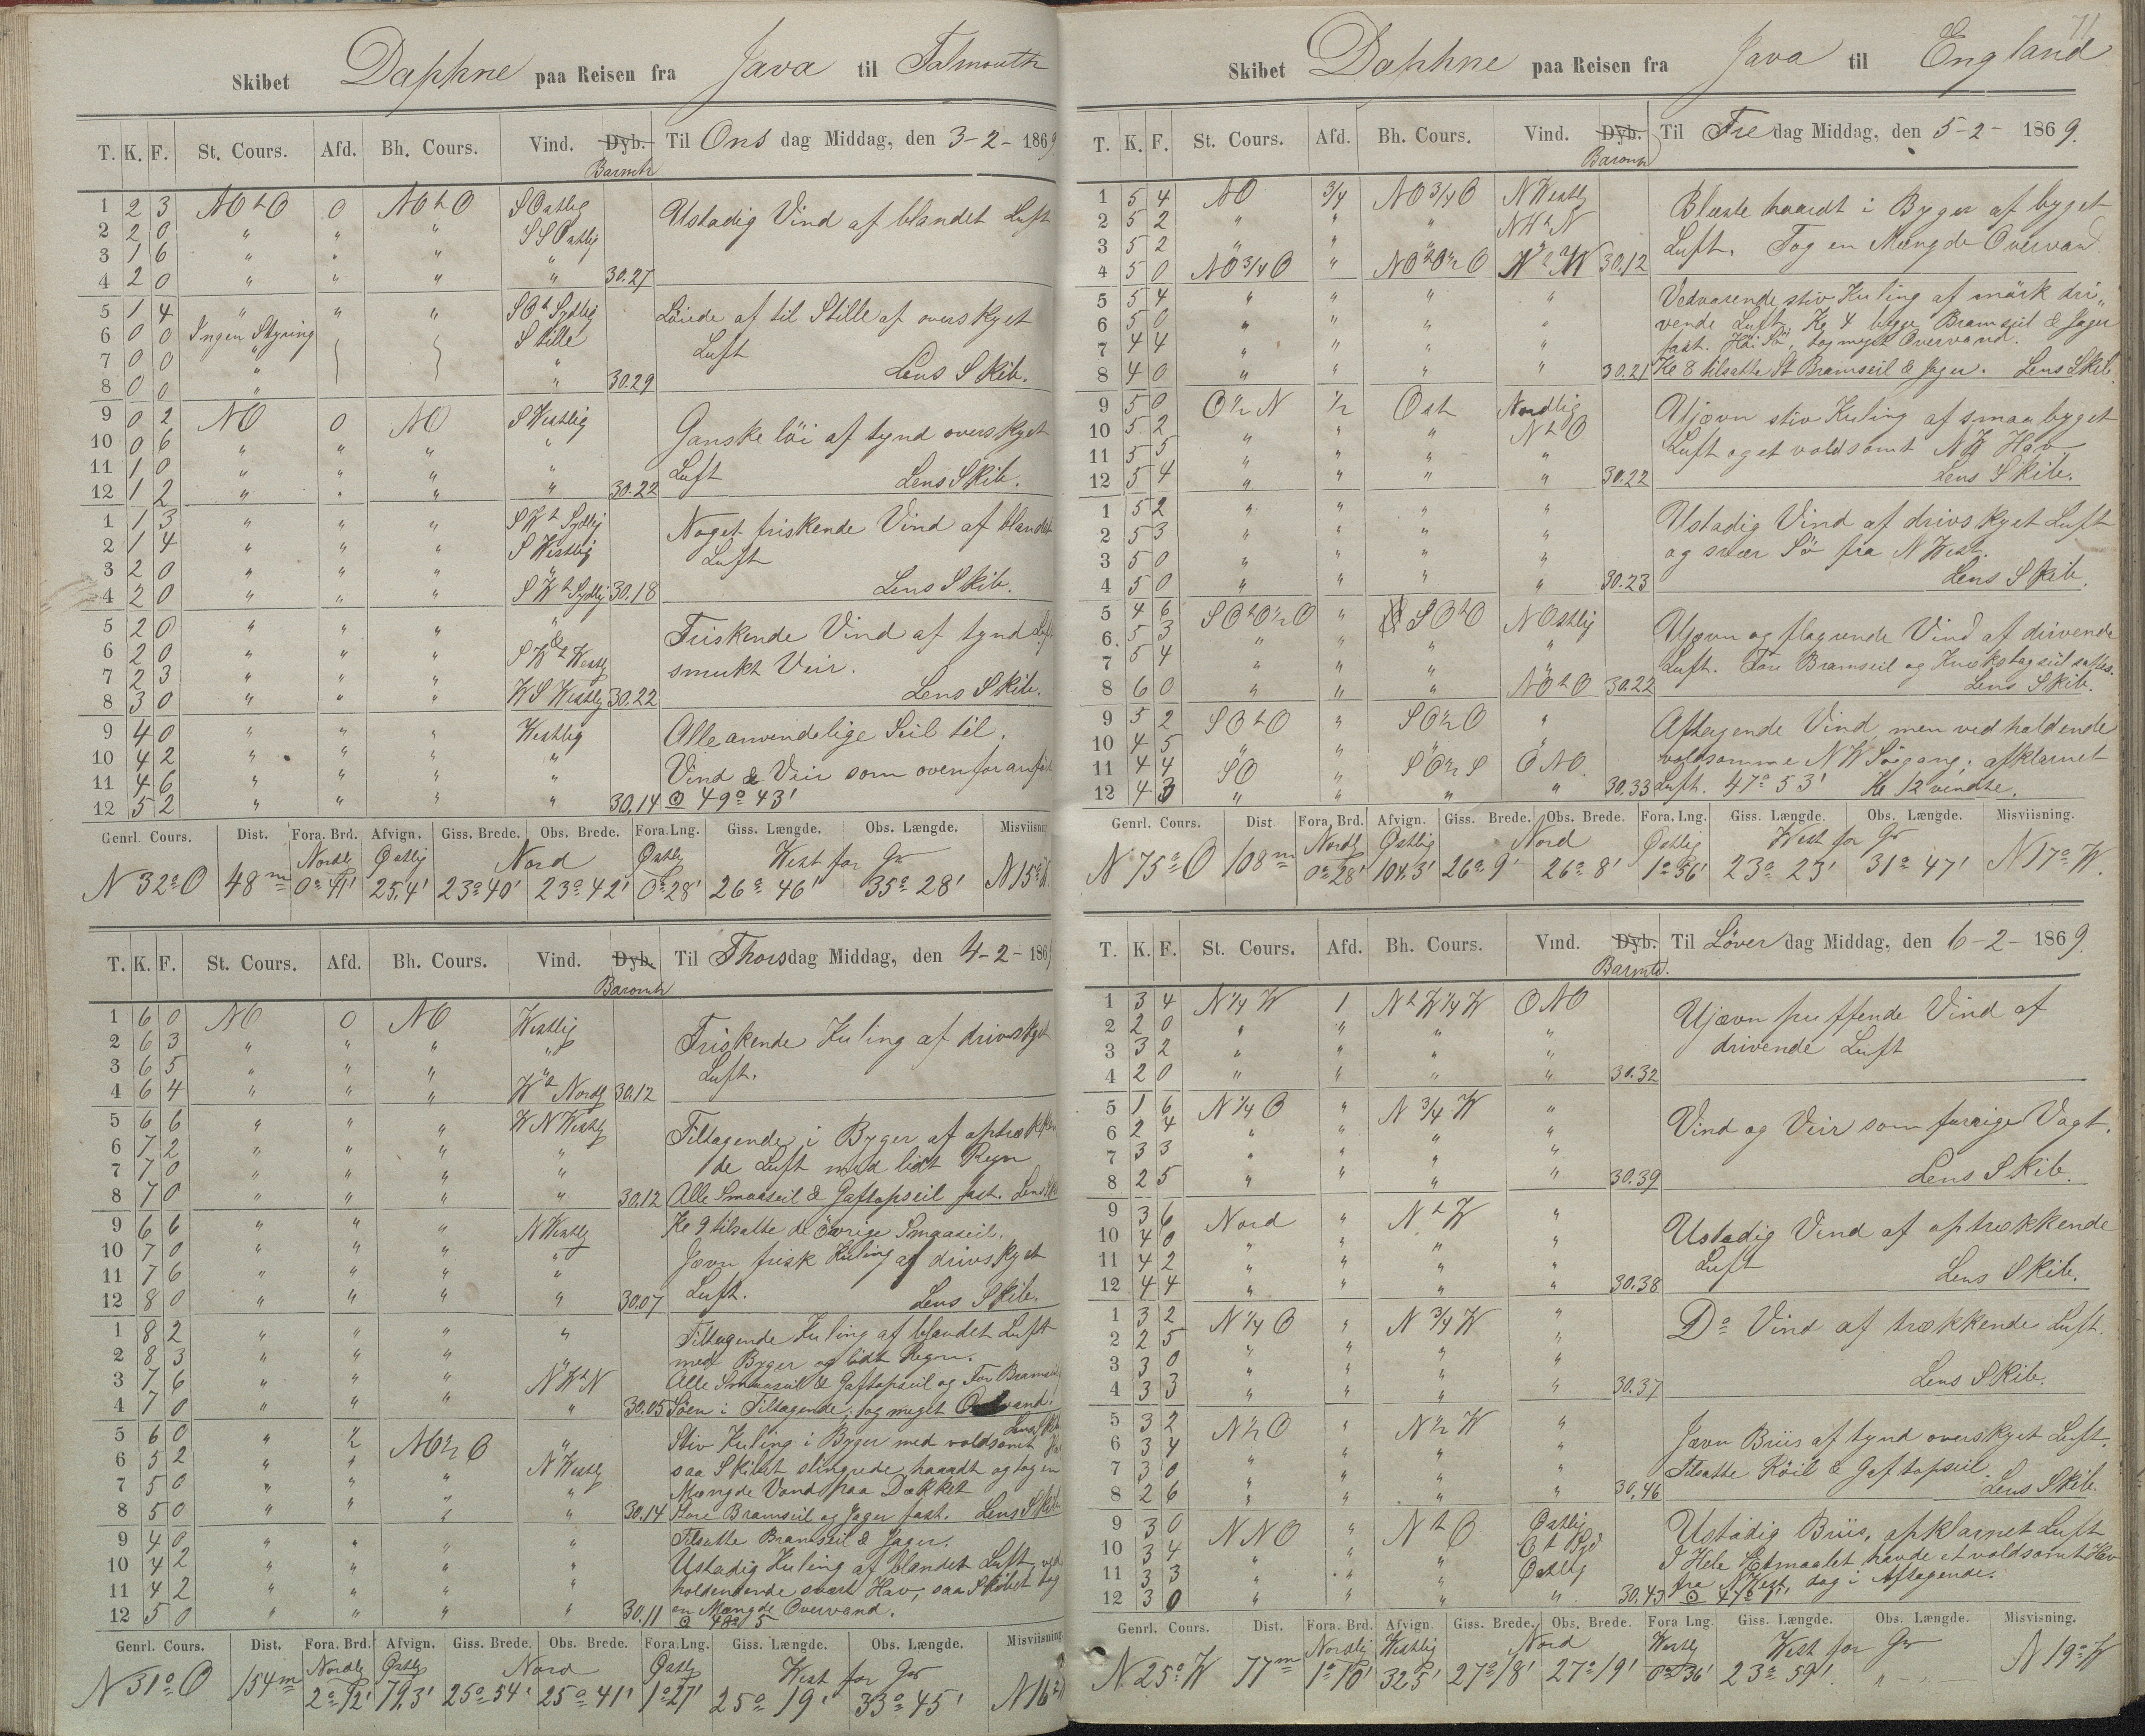 Skibet Daphne paa Reisen fra Java til Falmouth
T. K. F. St. Cours. Afd. Bh. Cours. Vind. Dyb. Til Onsdag Middag, den 3-2-1869
Baromtr
1 2 3 NOtO 0 NOtO SOstlig Ustadig Vind af blandet Luft
2 2 0 " " " SSOstlig
3 1 6 " " " "
4 2 0 " " " " 30.27
5 1 4 " " " SOt Sydlig Löiede af til Stille af overskyet
6 0 0 Ingen Styring Stille Luft
7 0 0 " "
8 0 0 " " 30.29 Lens Skib.
9 0 2 NO 0 NO SWestlig Ganske löi af tynd overskyet
10 0 6 " " " "
11 1 0 " " " " Luft Lens Skib.
12 1 2 " " " " 30.22
1 1 3 " " " SWt Sydlig Noget friskende Vind af blandet
2 1 4 " " " SWestlig Luft
3 2 0 " " " "
4 2 0 " " " SWt Sydlig 30.18 Lens Skib.
5 2 0 " " " " Friskende Vind af tynd Luft
6 2 0 " " " SWt Westlg smukt Veir.
7 2 3 " " "
8 3 0 " " " WSWestlg 30.22 Lens Skib.
9 4 0 " " " Westlig Alle anvendelige Seil til.
10 4 2 " " " " Vind & Veir som ovenfor anført
11 4 6 " " " "
12 5 2 " " " " 30.14 ⊙ 49° 43'
Genrl. Cours. Dist. Fora. Brd. Afvign. Giss. Brede. Obs. Brede. Fora. Lng. Giss. Længde. Obs. Længde. Misviisning
Nordlg Østlig Nord Østlg West for Gr
N 32° O 48 m 0° 41' 25,4' 23° 40' 23° 42' 0° 28' 26° 46' 35° 28' N 15°
T. K. F. St. Cours. Afd. Bh. Cours. Vind. Dyb. Til Thorsdag Middag, den 4-2-1869
Baromtr
1 6 0 NO 0 NO Westlig Friskende Kuling af drivskyet
2 6 3 " " " "
3 6 5 " " " " Luft.
4 6 4 " " " Wt Nordlg 30.12
5 6 6 " " " WNWestlg Tiltagende i Byger af optrækken
6 7 2 " " " " de Luft med lidt Regn
7 7 0 " " " "
8 7 0 " " " " 30.12 Alle Smaaseil & Gaftopseil fast. Lens Sk
9 6 6 " " " NWestlg Kl 9 tilsatte de övrige Smaaseil.
10 7 0 " " " " Jævn frisk Kuling af drivskyet
11 7 6 " " " "
12 8 0 " " " " 30.07 Luft. Lens Skib.
1 8 2 " " " " Tiltagende Kuling af blandet Luft
2 8 3 " " " " med Byger og lidt Regn.
3 7 6 " " " NWtN Alle Smaaseil & Gaftopseil og For Bramseil
4 7 0 " " " " 30.05 Söen i Tiltagende, tog meget Overvand.
Lens Skib
5 6 0 " ½ NO½O " Stiv Kuling i Byger med voldsomt
6 5 2 " " " NWestlg saa Skibet slingrede haardt og tog en
7 5 0 " " " " Mængde Vand paa Dækket
8 5 0 " " " " 30.14 Store Bramseil og Jager fast. Lens Skib
9 4 0 " " " " Tilsatte Bramseil & Jager.
10 4 2 " " " " Ustadig Kuling af blandet Luft, ved
11 4 2 " " " " holdendende svært Hav, saa Skibet tog
12 5 0 " " " " 30.11 en Mængde Overvand.
⊙ 48° 5
Genrl. Cours. Dist. Fora. Brd. Afvign. Giss. Brede. Obs. Brede. Fora. Lng. Giss. Længde. Obs. Længde. Misviisning
Nordlg Østlig Nord Østlg West for Gr
N 51° O 154 m 2° 12' 72,3' 25° 54' 25° 41' 1° 27' 25° 19' 33° 45' N 16°
71
Skibet Daphne paa Reisen fra Java til England
T. K. F. St. Cours. Afd. Bh. Cours. Vind. Dyb. Til Fredag Middag, den 5-2-1869.
Baromtr
1 5 4 NO ¾ NO¾O NWestlg Blæste haardt i Byger af byget
2 5 2 " " " NWtN
3 5 2 " " " " Luft. Tog en Mængde Overvand
4 5 0 NO¾O " NOtO½O NtW 30.12
5 5 4 " " " " Vedvarende stiv Kuling af mörk dri„
6 5 0 " " " " vende Luft. Kl 4 begge Bramseil & Jager
7 4 4 " " " " fast. Höi Sö, tog meget Overvand.
8 4 0 " " " " 30.21 Kl 8 tilsatte St Bramseil & Jager. Lens Skib.
9 5 0 O½N ½ Ost Nordlig Ujævn stiv Kuling af smaa byget
10 5 2 " " " NtO
11 5 5 " " " " Luft og et voldsomt NW Hav
12 5 4 " " " " 30.22 Lens Skib.
1 5 2 " " " " Ustadig Vind af drivskyet Luft
2 5 3 " " " " og svær Sö fra NWest.
3 5 0 " " " "
4 5 0 " " " " 30.23 Lens Skib.
5 4 6 SOtO½O " SOtO NOstlig Ujævn og flagende Vind af drivende
6 5 3 " " " "
7 5 4 " " " " Luft. Fore Bramseil og Krækstagseil sattes.
8 6 0 " " " NOtO 30.22 Lens Skib.
9 5 2 SOtO " SO½O " Aftagende Vind, men vedholdende
10 4 5 " " " " voldsomme NW Söegang, afklarnet
11 4 4 SO " SO½S ONO
12 4 3 " " " " 30.33 Luft. 47° 53' Kl 12 vendte.
Genrl. Cours. Dist. Fora. Brd. Afvign. Giss. Brede. Obs. Brede. Fora. Lng. Giss. Længde. Obs. Længde. Misviisning.
Nordlg Østlig Nord Østlig West for Gr
N 75° O 108 m 0° 28' 104.3' 26° 9' 26° 8' 1° 56' 23° 23' 31° 47' N 17° W.
T. K. F. St. Cours. Afd. Bh. Cours. Vind. Dyb. Til Löverdag Middag, den 6-2-1869.
Barmtr.
1 3 4 N¼W 1 NtW¼W ONO Ujævn puffende Vind af
2 2 0 " " " "
3 3 2 " " " " drivende Luft
4 2 0 " " " " 30.32
5 1 6 N¼O " N¾W " Vind og Veir som forrige Vagt.
6 2 4 " " " "
7 3 3 " " " "
8 2 5 " " " " 30.39 Lens Skib.
9 3 6 Nord " NtW " Ustadig Vind af optrækkende
10 4 0 " " " "
11 4 2 " " " " Luft
12 4 4 " " " " 30.38 Lens Skib.
1 3 2 N¼O " N¾W " Do Vind af trækkende Luft.
2 2 5 " " " "
3 3 0 " " " "
4 3 3 " " " " 30.37 Lens Skib.
5 3 2 N½O " N½W " Jævn Briis af tynd overskyet Luft.
6 3 4 " " " "
7 3 0 " " " " Tilsatte Röil & Gaftopseil
8 2 6 " " " " 30.46 Lens Skib.
9 3 0 NNO " NtO Østlig Ustadig Briis, afklarnet Luft
10 3 4 " " " Ot Syd I Hele Etmaalet havde et voldsomt Hav
11 3 3 " " " Østlig fra NWest, dog i Aftagende.
12 3 0 " " " " 30.43 ⊙ 47°
Genrl. Cours. Dist. Fora. Brd. Afvign. Giss. Brede. Obs. Brede. Fora Lng. Giss. Længde. Obs. Længde. Misvisning.
Nordlig Westlig Nord Westlg West for Gr
N 25° W 77 m 1° 10' 32,5' 27° 18' 27° 19' 0° 36' 23° 59' " N 19° W